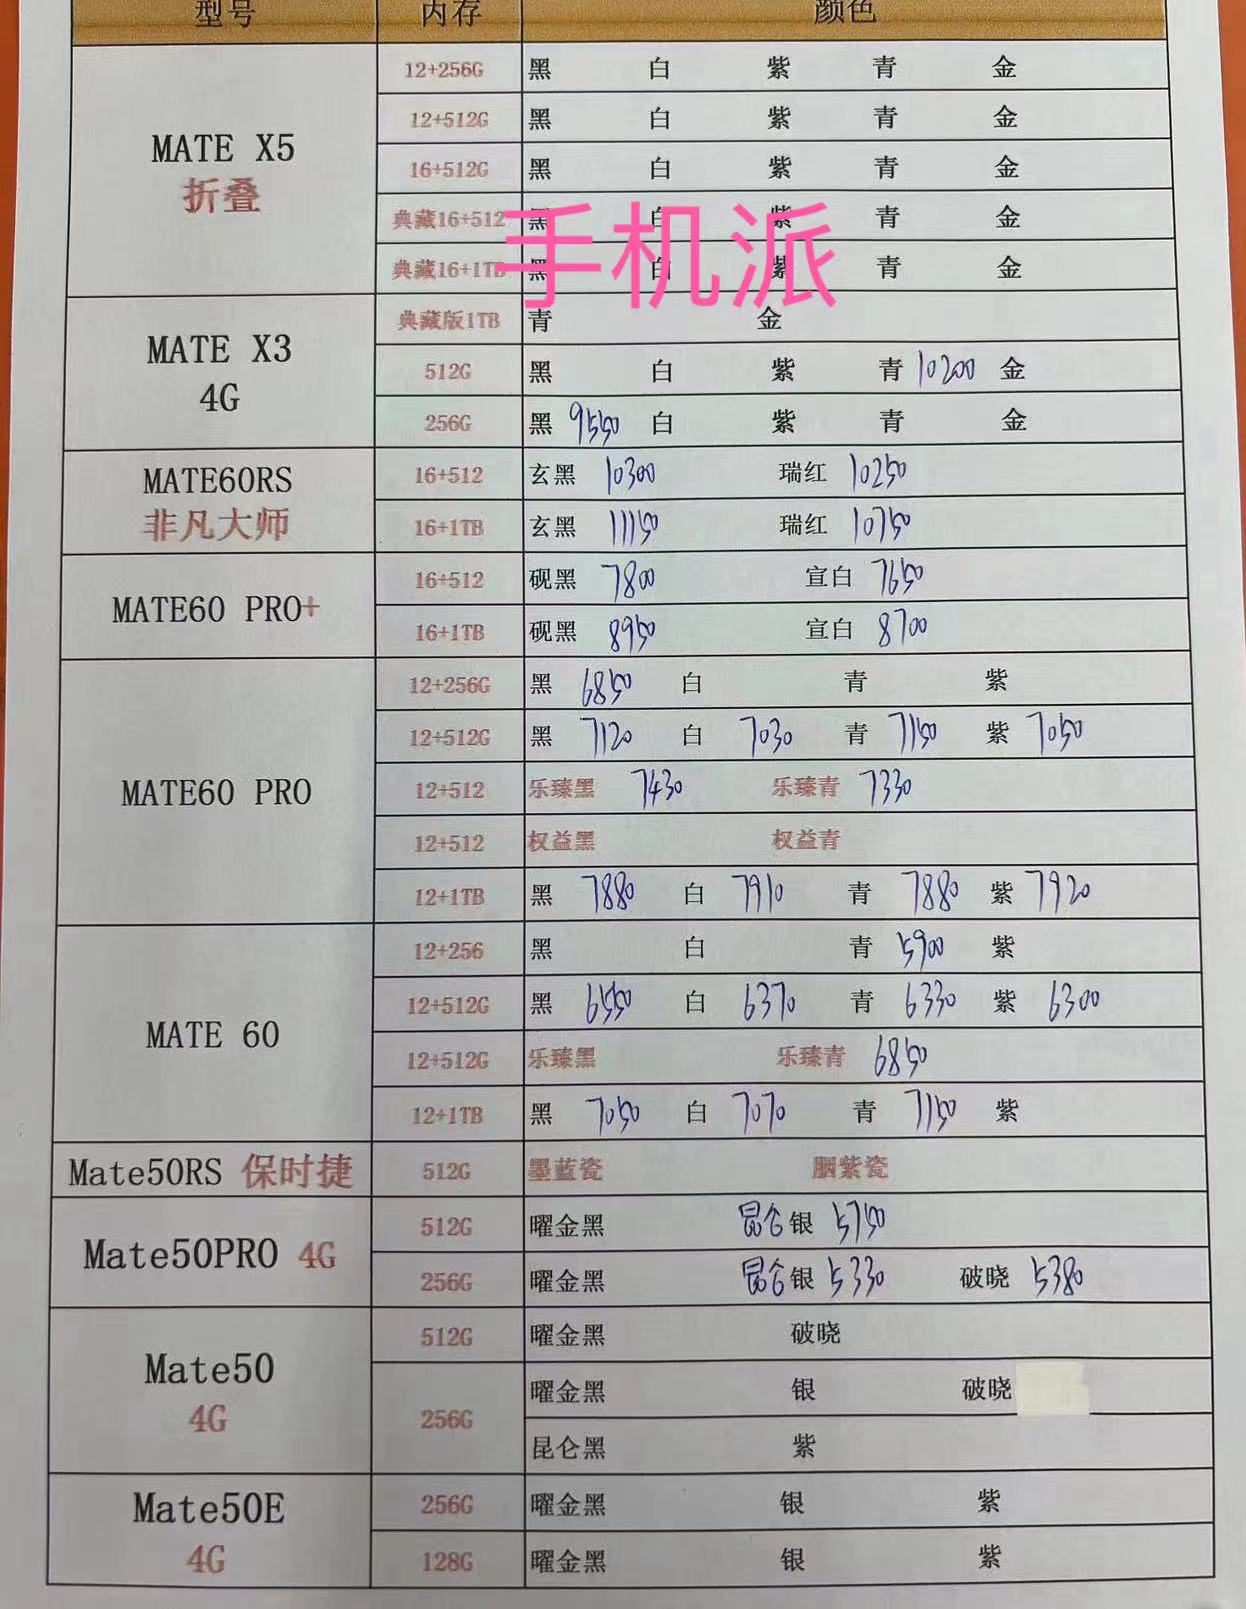 型号 内存 颜色
MATE X5 折叠
12+256G 黑 白 紫 青 金
12+512G 黑 白 紫 青 金
16+512G 黑 白 紫 青 金
典藏16+512 黑 白 紫 青 金
手机派
典藏16+1TB 黑 白 紫 青 金
MATE X3 4G
典藏版1TB 青 金
512G 黑 白 紫 青 10200 金
256G 黑 9550 白 紫 青 金
MATE60RS 非凡大师
16+512 玄黑 10300 瑞红 10250
16+1TB 玄黑 11150 瑞红 10750
MATE60 PRO+
16+512 砚黑 7800 宣白 7650
16+1TB 砚黑 8950 宣白 8700
MATE60 PRO
12+256G 黑 6850 白 青 紫
12+512G 黑 7120 白 7030 青 7150 紫 7050
12+512 乐臻黑 7430 乐臻青 7330
12+512 权益黑 权益青
12+1TB 黑 7880 白 7910 青 7880 紫 7920
MATE 60
12+256 黑 白 青 5900 紫
12+512G 黑 6550 白 6370 青 6330 紫 6300
12+512G 乐臻黑 乐臻青 6850
12+1TB 黑 7050 白 7070 青 7150 紫
Mate50RS 保时捷 512G 墨蓝瓷 胭紫瓷
Mate50PRO 4G
512G 曜金黑 昆仑银 5750
256G 曜金黑 昆仑银 5330 破晓 5380
Mate50 4G
512G 曜金黑 破晓
256G 曜金黑 银 破晓
昆仑黑 紫
Mate50E 4G
256G 曜金黑 银 紫
128G 曜金黑 银 紫